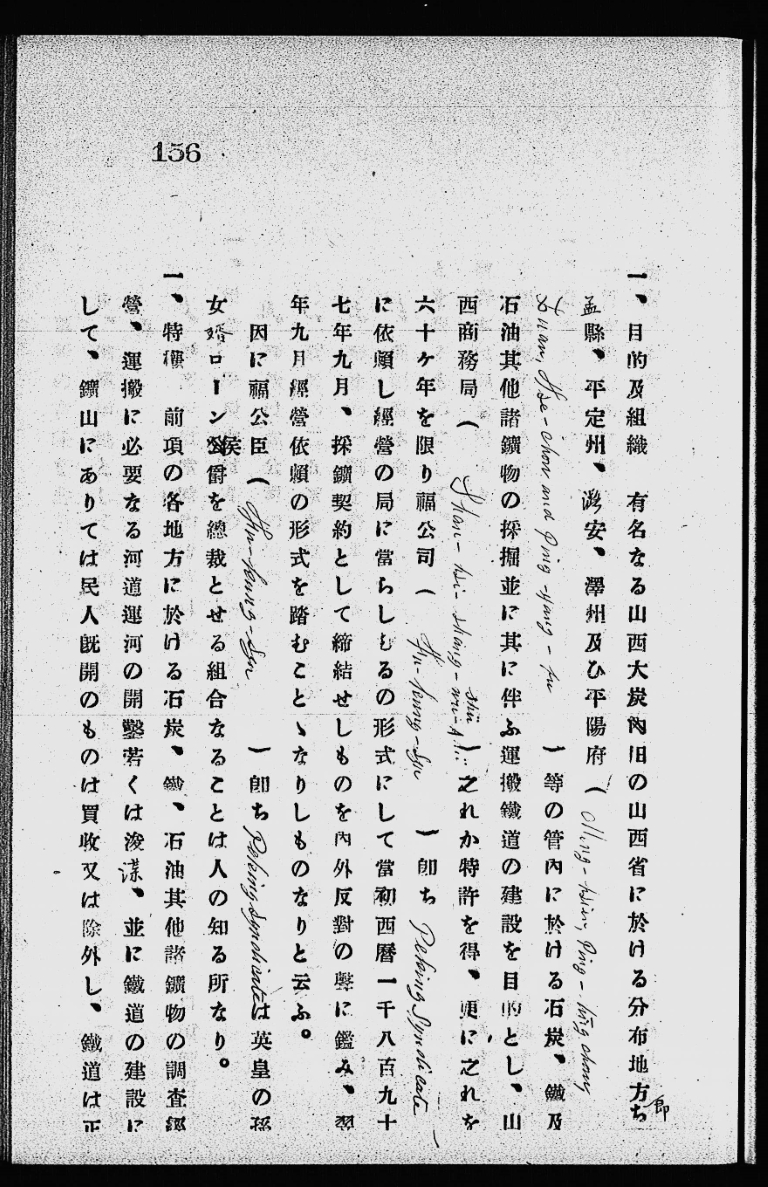 156
一、目的及組織　有名なる山西大炭内旧の山西省に於ける分布地方即ち
盂縣、平定州、潞安、澤州及ひ平陽府（Ming-hsien, Ping-ting chow,
Luan, Hse-chow and Ping-yang-fu）等の管內に於ける石炭、鐵及
石油其他諸鑛物の採掘並に其に伴ふ運搬鐵道の建設を目的とし、山
西商務局（Shan-hsi-shang-wu-）之れか特許を得、更に之れを
六十ヶ年を限り福公司（Fu-kung-Szu）卽ち Peking Syndicate
に依賴し經營の局に當らしむるの形式にして當初西曆一千八百九十
七年九月、採鑛契約として締結せしものを內外反對の聲に鑑み、翌
年九月經營依賴の形式を踏むことゝなりしものなりと云ふ。
因に福公臣（Fu-kung-Szu）卽ち Peking Syndicate は英皇の孫
女婿ローン侯爵を總裁とせる組合なることは人の知る所なり。
一、特權　前項の各地方に於ける石炭、鐵、石油其他諸鑛物の調査經
營、運搬に必要なる河道運河の開鑿若くは浚渫、並に鐵道の建設に
して、鑛山にありては民人旣開のものは買收又は除外し、鐵道は正